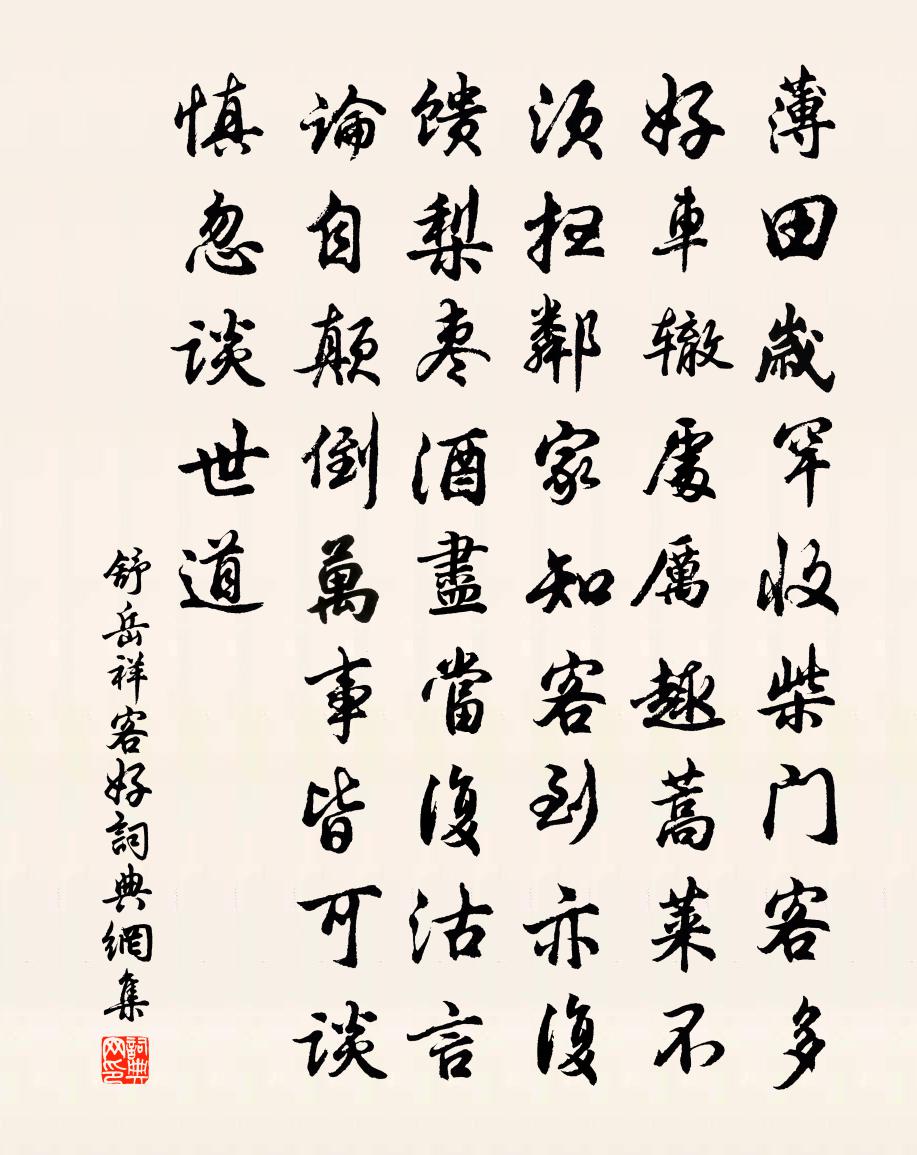 薄田歲罕收柴门客多
好車辙處厲趣蒿萊不
須扫鄰家知客到亦復
馈梨枣酒盡當復沽言
論自顛倒萬事皆可談
慎忽談世道
舒岳祥客好詞典網集
詞典网印